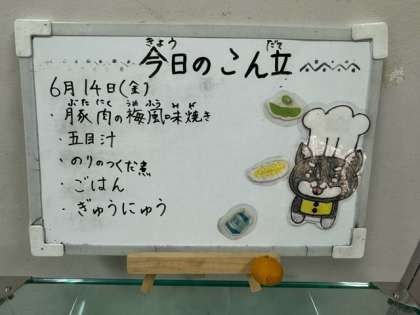 きょう だて
今日のこん立
6月14日(金)
ぶた にく うめ ふう み や
・豚肉の梅風味焼き
・五目汁
・のりのつくだ煮
・ごはん
・ぎゅうにゅう